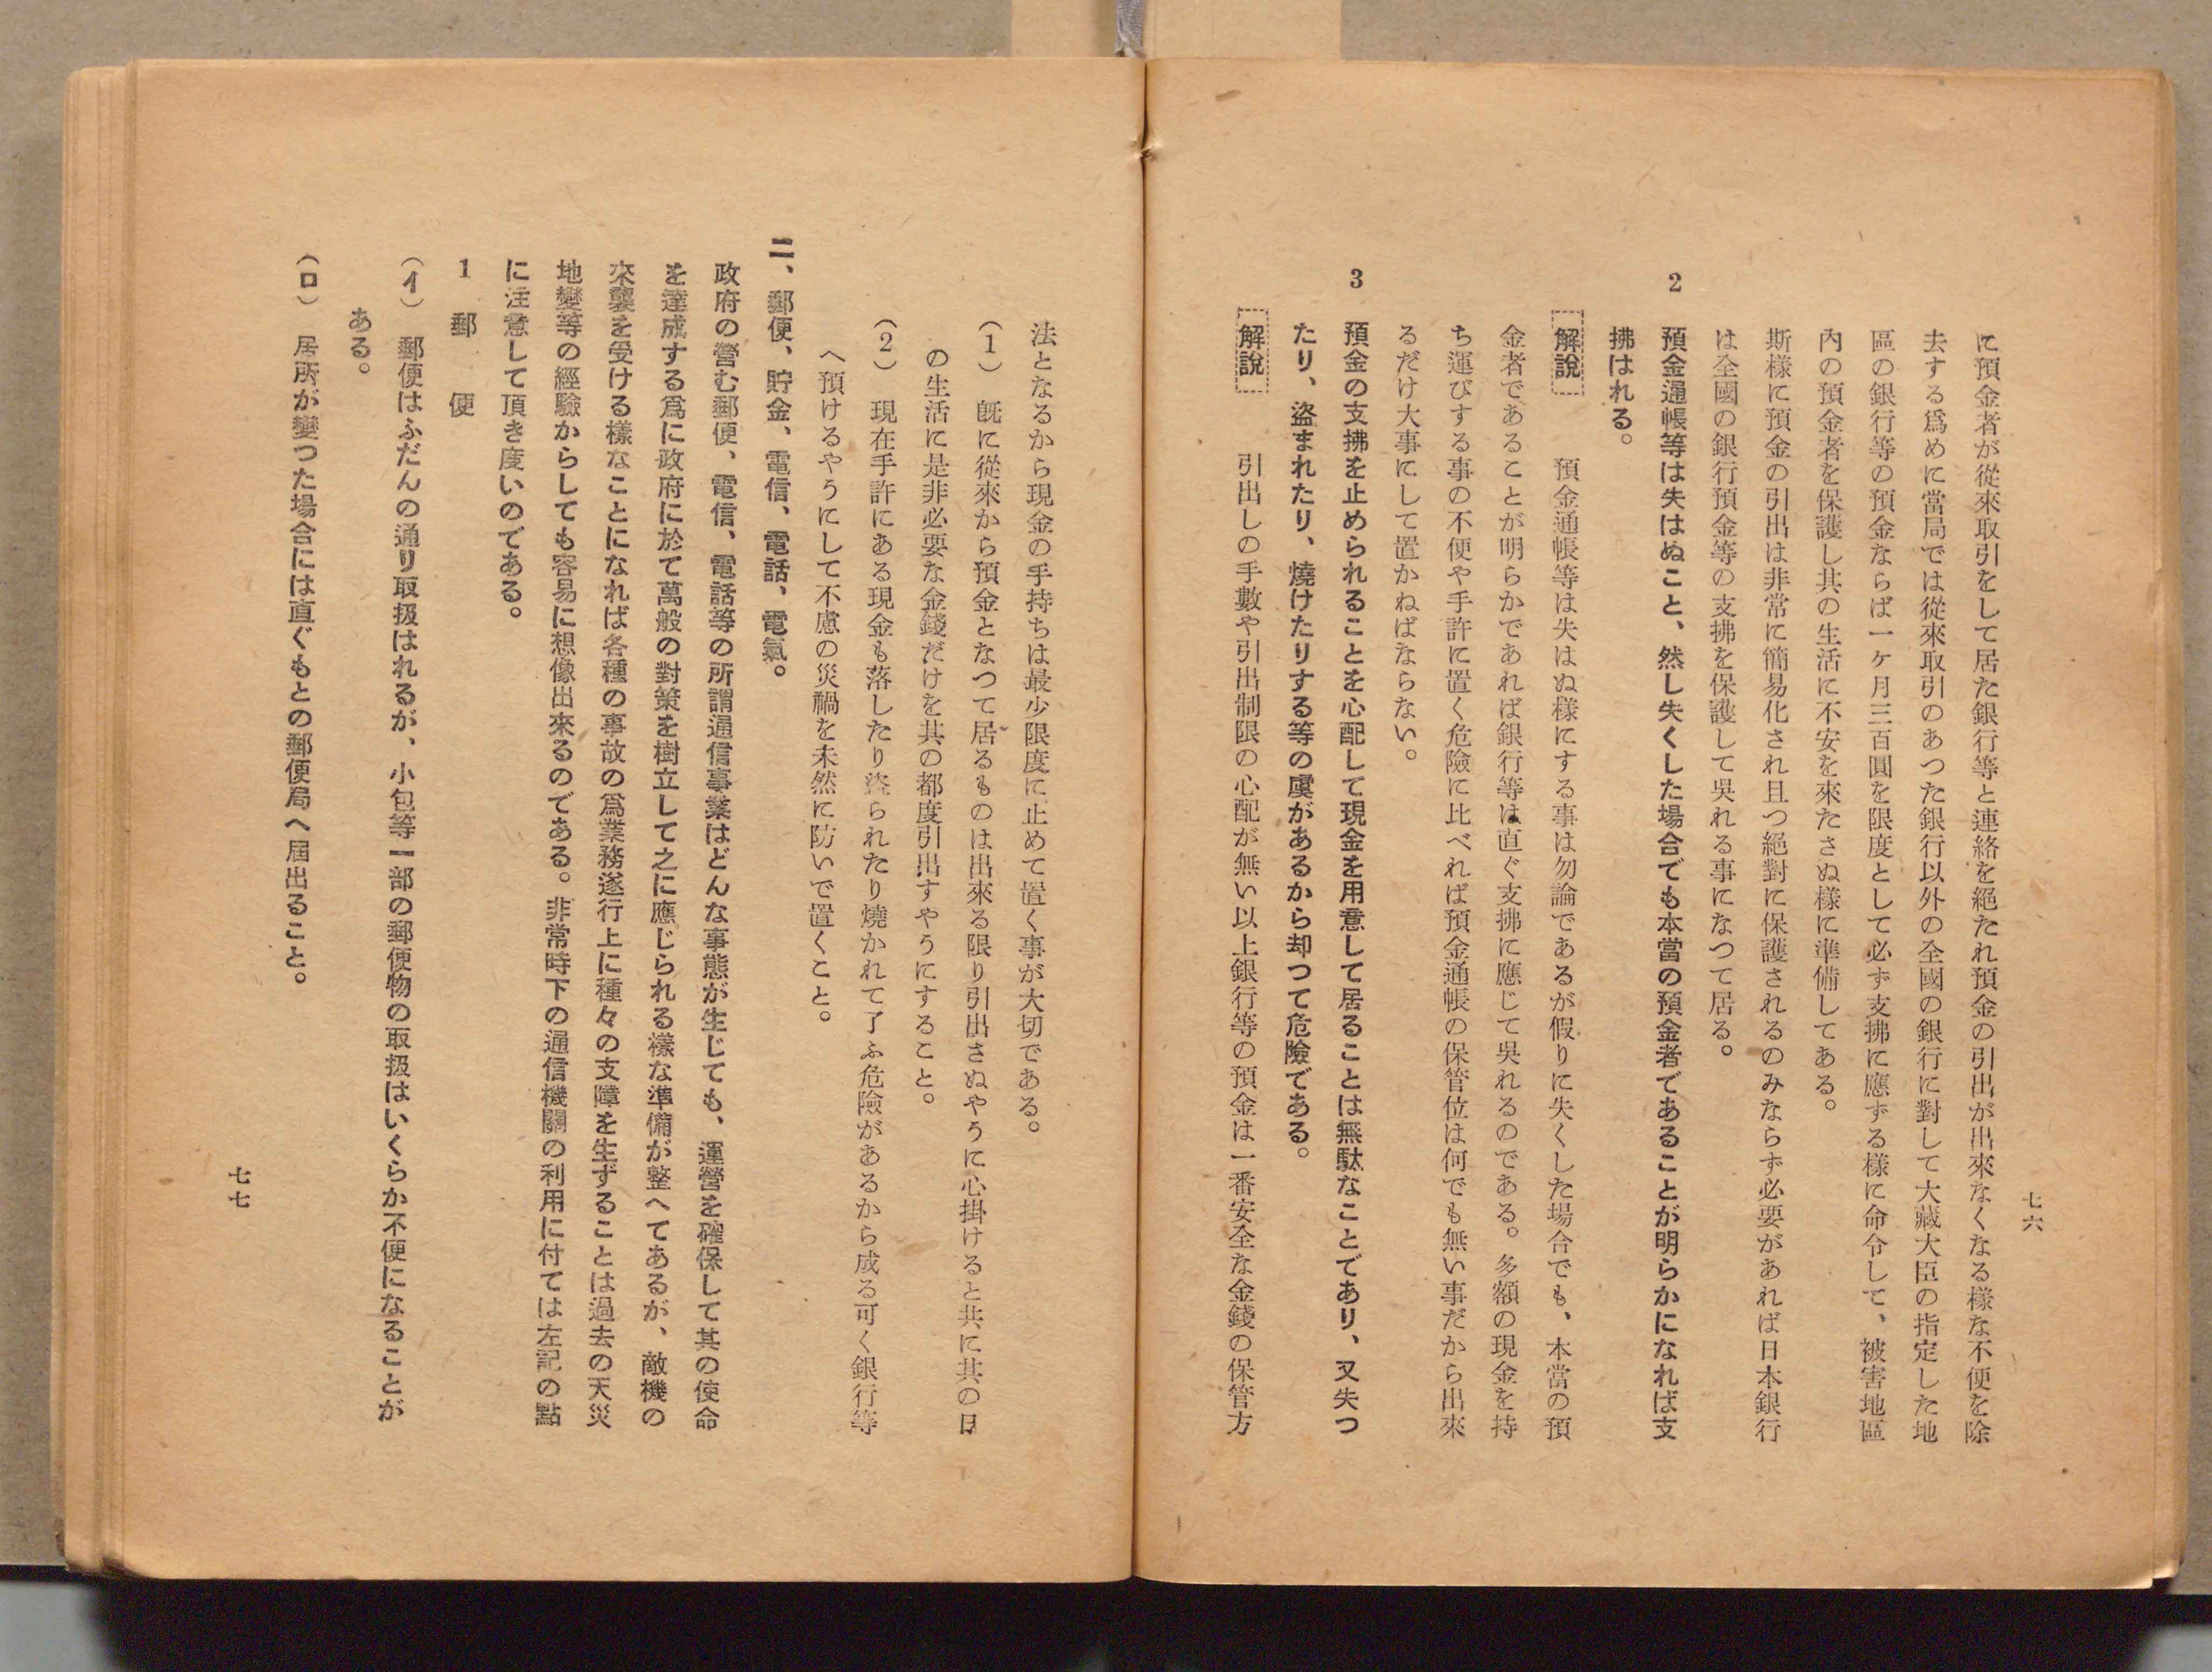 七六
に預金者が從來取引をして居た銀行等と連絡を絶たれ預金の引出が出來なくなる樣な不便を除
去する爲めに當局では從來取引のあつた銀行以外の全國の銀行に對して大藏大臣の指定した地
區の銀行等の預金ならば一ヶ月三百圓を限度として必ず支拂に應ずる樣に命令して、被害地區
內の預金者を保護し其の生活に不安を來たさぬ樣に準備してある。
斯樣に預金の引出は非常に簡易化され且つ絕對に保護されるのみならず必要があれば日本銀行
は全國の銀行預金等の支拂を保護して吳れる事になつて居る。
2　預金通帳等は失はぬこと、然し失くした場合でも本當の預金者であることが明らかになれば支
拂はれる。
解說　預金通帳等は失はぬ樣にする事は勿論であるが假りに失くした場合でも、本當の預
金者であることが明らかであれば銀行等は直ぐ支拂に應じて吳れるのである。多額の現金を持
ち運びする事の不便や手許に置く危險に比べれば預金通帳の保管位は何でも無い事だから出來
るだけ大事にして置かねばならない。
3　預金の支拂を止められることを心配して現金を用意して居ることは無駄なことであり、又失つ
たり、盜まれたり、燒けたりする等の虞があるから却つて危險である。
解說　引出しの手數や引出制限の心配が無い以上銀行等の預金は一番安全な金錢の保管方
法となるから現金の手持ちは最少限度に止めて置く事が大切である。
（1）　旣に從來から預金となつて居るものは出來る限り引出さぬやうに心掛けると共に其の日
の生活に是非必要な金錢だけを其の都度引出すやうにすること。
（2）　現在手許にある現金も落したり盜られたり燒かれて了ふ危險があるから成る可く銀行等
へ預けるやうにして不慮の災禍を未然に防いで置くこと。
二、郵便、貯金、電信、電話、電氣。
政府の營む郵便、電信、電話等の所謂通信事業はどんな事態が生じても、運營を確保して其の使命
を達成する爲に政府に於て萬般の對策を樹立して之に應じられる樣な準備が整へてあるが、敵機の
來襲を受ける樣なことになれば各種の事故の爲業務遂行上に種々の支障を生ずることは過去の天災
地變等の經驗からしても容易に想像出來るのである。非常時下の通信機關の利用に付ては左記の點
に注意して頂き度いのである。
1　郵　便
（イ）　郵便はふだんの通り取扱はれるが、小包等一部の郵便物の取扱はいくらか不便になることが
ある。
（ロ）　居所が變つた場合には直ぐもとの郵便局へ屆出ること。
七七